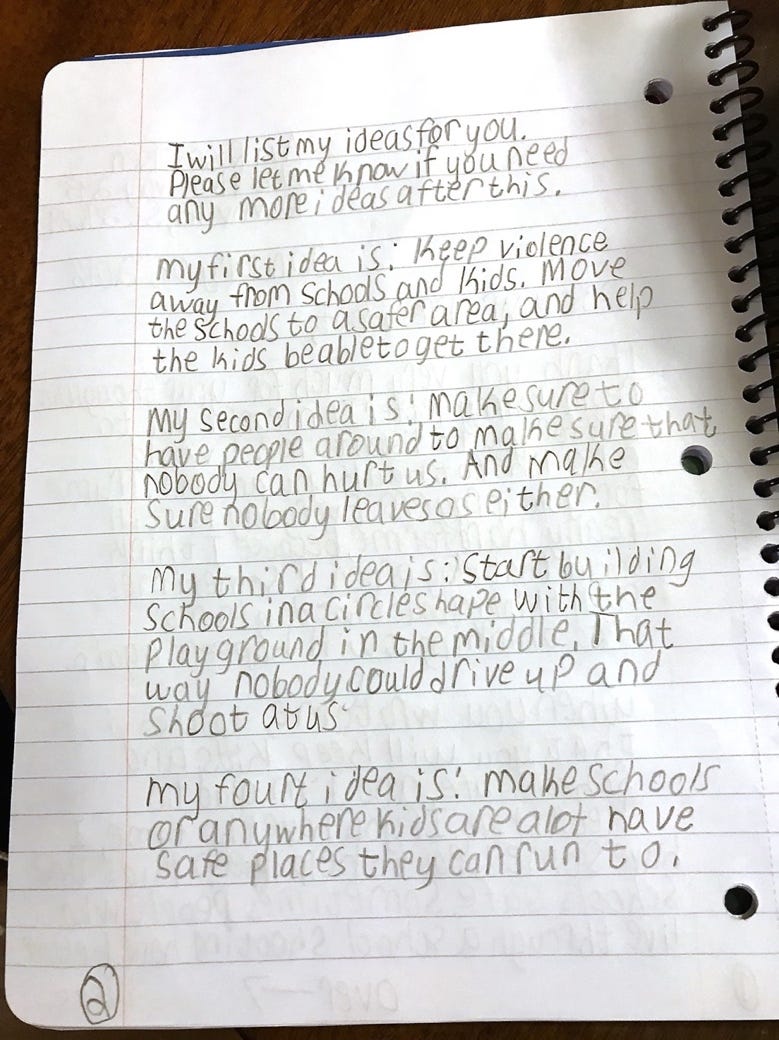 I will list my ideas for you.
Please let me know if you need
any more ideas after this.
my first idea is: Keep violence
away from schools and kids. Move
the schools to a safer area, and help
the kids be able to get there.
My second idea is: make sure to
have people around to make sure that
nobody can hurt us. And make
sure nobody leaves as either.
My third idea is: Start building
schools in a circle shape with the
playground in the middle. That
way nobody could drive up and
shoot at us
my fourt idea is: make schools
or anywhere kids are alot have
safe places they can run to.
2